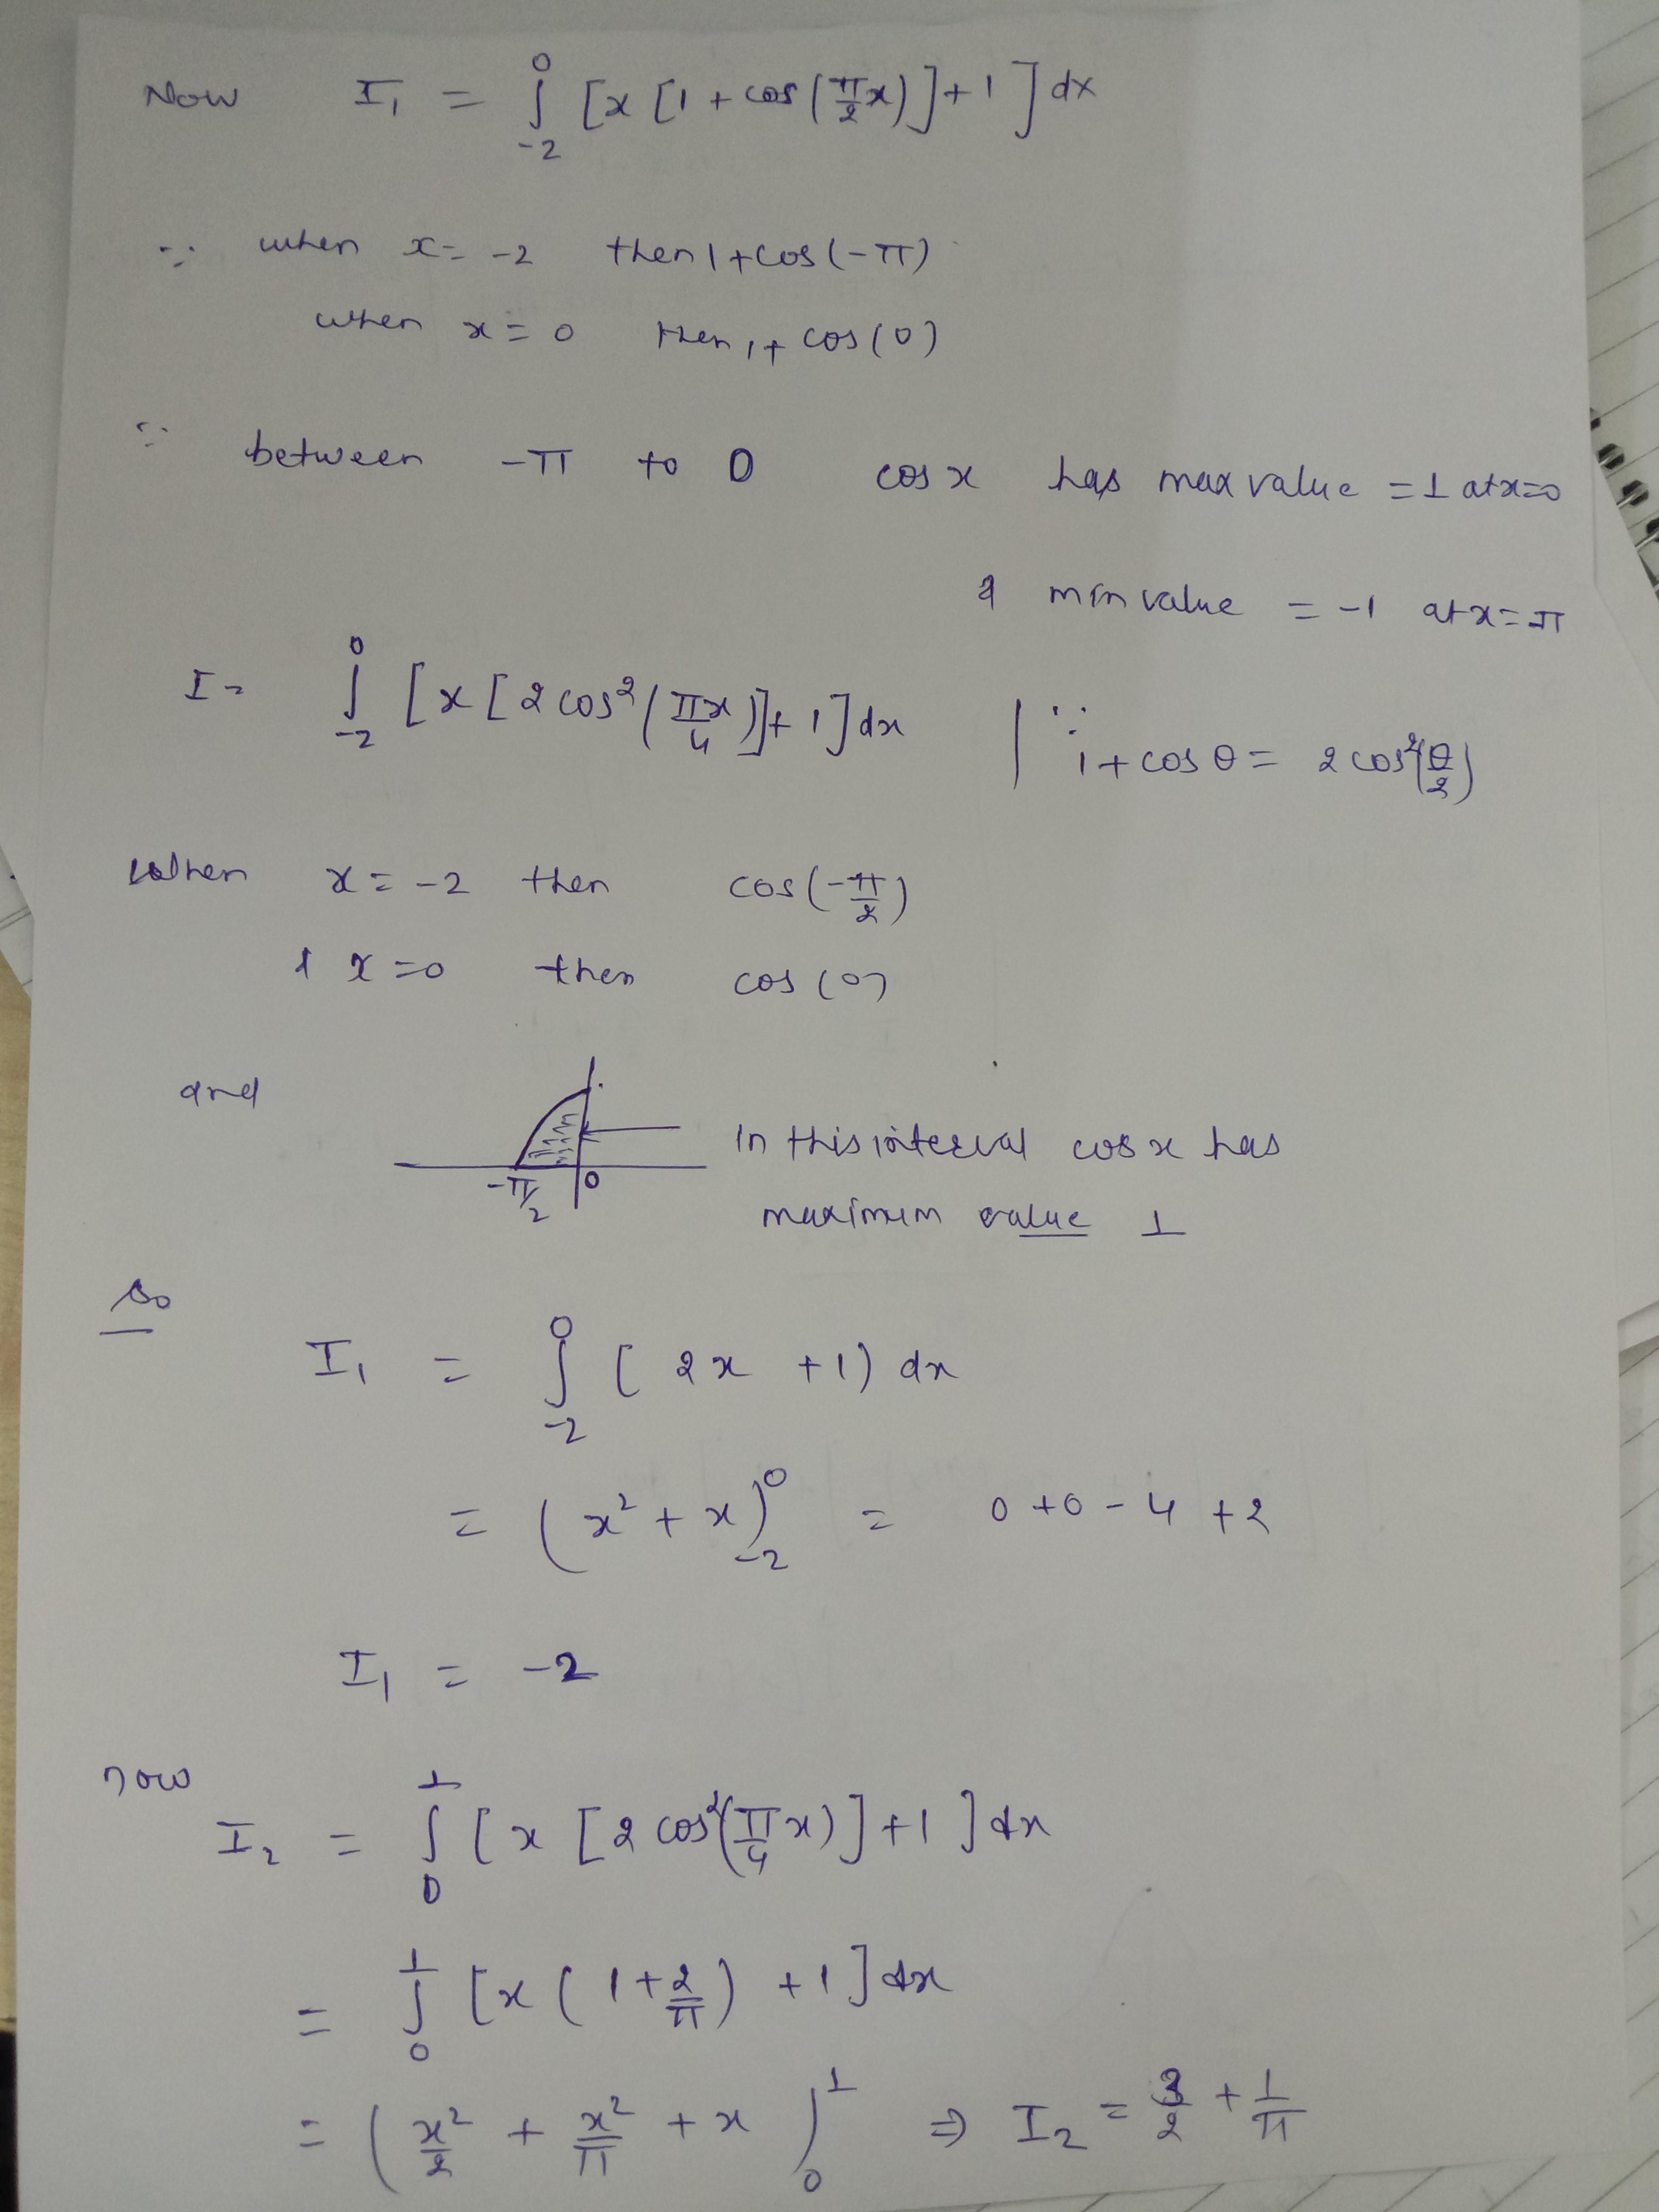 Now I₁ = ∫₋₂⁰ [x [1 + cos(π/2 x)] + 1] dx
∵ when x = -2 then 1 + cos(-π)
when x = 0 then 1 + cos(0)
∵ between -π to 0 cos x has max value = 1 at x=0
& min value = -1 at x = π
I = ∫₋₂⁰ [x [2 cos²(πx/4)] + 1] dx | ∵ 1 + cos θ = 2 cos²(θ/2)
When x = -2 then cos(-π/2)
& x = 0 then cos(0)
and
-π/2 0
In this interval cos x has
maximum value 1
So
I₁ = ∫₋₂⁰ [2x + 1) dx
= (x² + x)₋₂⁰ = 0 + 0 - 4 + 2
I₁ = -2
now
I₂ = ∫₀¹ [x [2 cos²(π/4 x)] + 1] dx
= ∫₀¹ [x (1 + 2/π) + 1] dx
= (x²/2 + x²/π + x)₀¹ ⇒ I₂ = 3/2 + 1/π